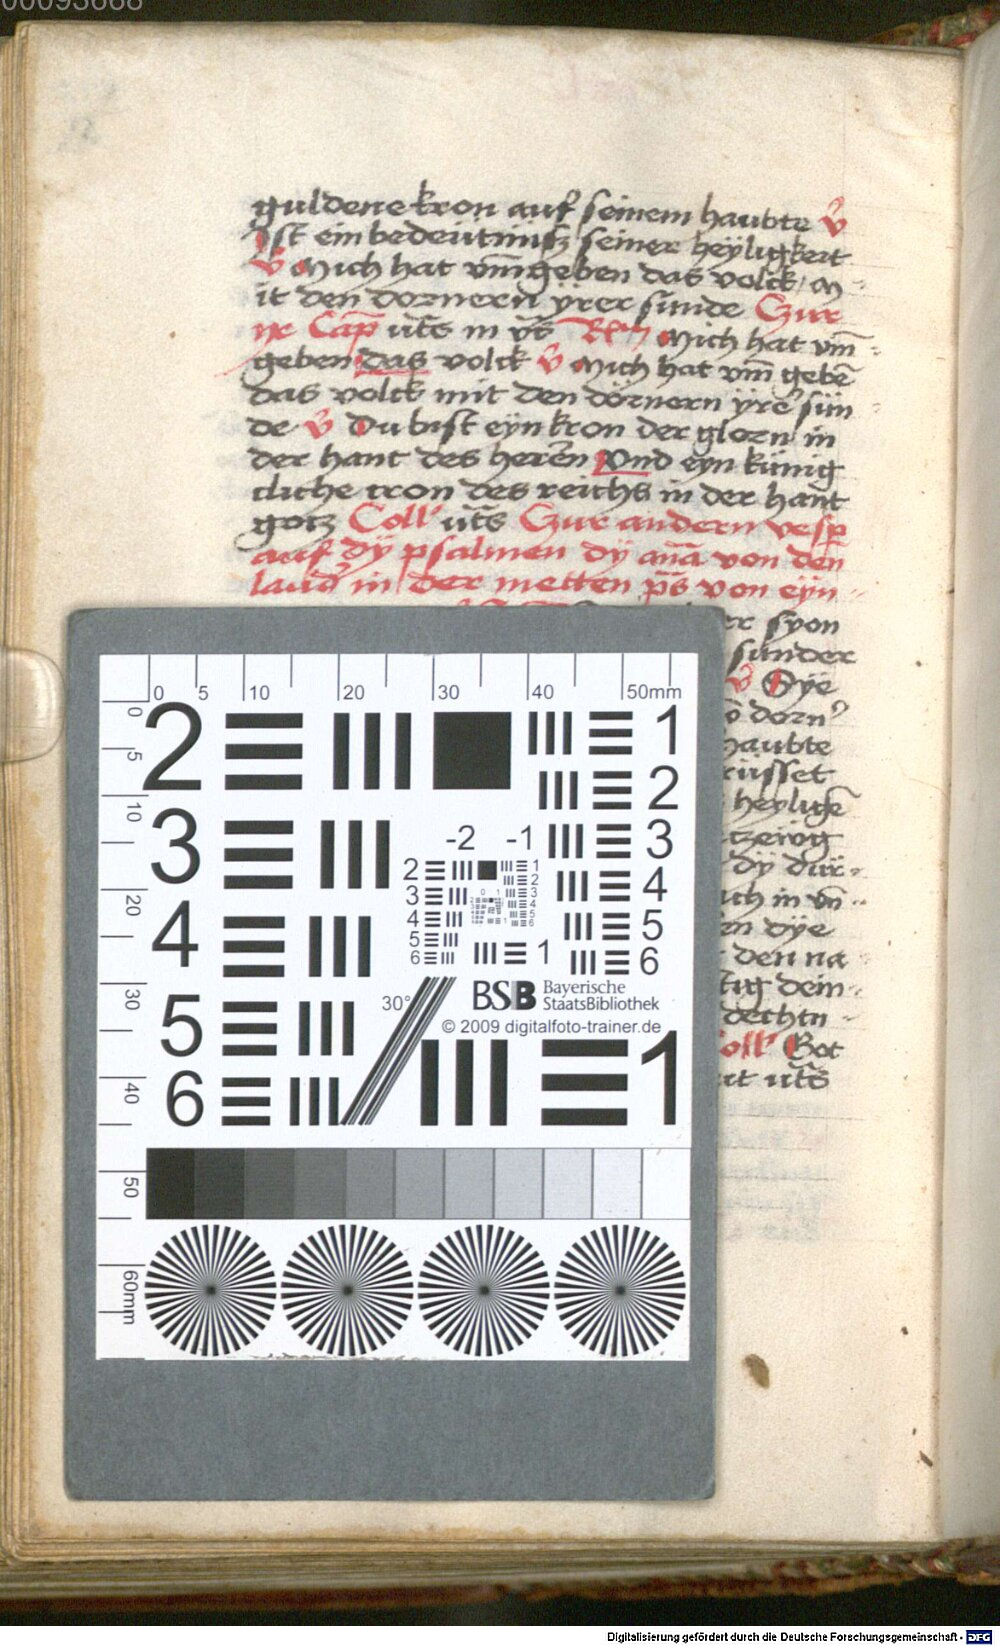 00093668
guldene kron auf seinem haubte v̄
Ist ein bedeütniß seiner heyligkeit
v̄ Mich hat vm̄geben das volck / m
it den dornern yrer sunde Czur
ix Cap̄ ut̄s in v̄s Mich hat vm̄
geben das volck v̄ Mich hat vm̄ gebē
das volck mit den dörnern ÿrer sün
de v̄ Du bist eyn kron der glorn in
der hant des herēn Vnd eyn künig
cliche cron des reichs in der hant
gotz Coll' ut̄s Czur andern vesp̄
auf dÿ psalmen dÿ an̄a von den
laud' in der metten p̄s von eyn
er syon
sunder
v̄ Dye
dorn'
haubte
rüsset
heylige
tzeiog
dÿ dür
ich in vn̄
en dÿe
den na
tug dein
dechtn
Coll' Got
ut̄s
0 5 10 20 30 40 50mm
0 5 10 20 30 40 50 60mm
2 1
2
3 3
-2 -1
4 4
5
6
5
6
30°
BSB Bayerische StaatsBibliothek
© 2009 digitalfoto-trainer.de
1
Digitalisierung gefördert durch die Deutsche Forschungsgemeinschaft - DFG